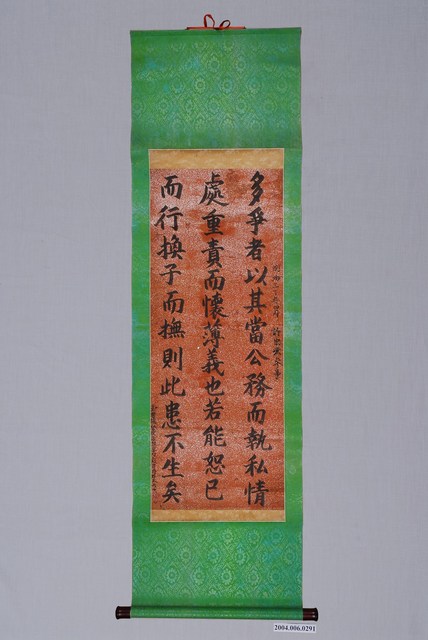 多爭者以其當公務而執私情
處重責而懷薄義也若能恕己
而行換子而撫則此患不生矣
2004.006.0291